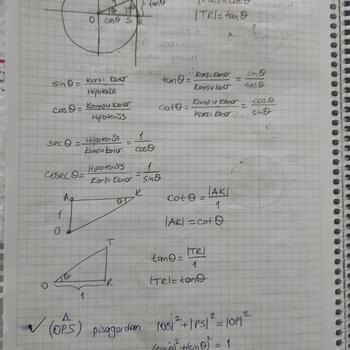 |TR| = tanθ
O cosθ S R
sinθ = Karşı Kenar / Hipotenüs
tanθ = Karşı Kenar / Komşu Kenar = sinθ / cosθ
cosθ = Komşu Kenar / Hipotenüs
cotθ = Komşu Kenar / Karşı Kenar = cosθ / sinθ
secθ = Hipotenüs / Komşu Kenar = 1 / cosθ
cosecθ = Hipotenüs / Karşı Kenar = 1 / sinθ
A K
θ
1
O
cotθ = |AK| / 1
|AK| = cotθ
T
O θ R
1
tanθ = |TR| / 1
|TR| = tanθ
✓ (OPS) pisagordan |OS|² + |PS|² = |OP|²